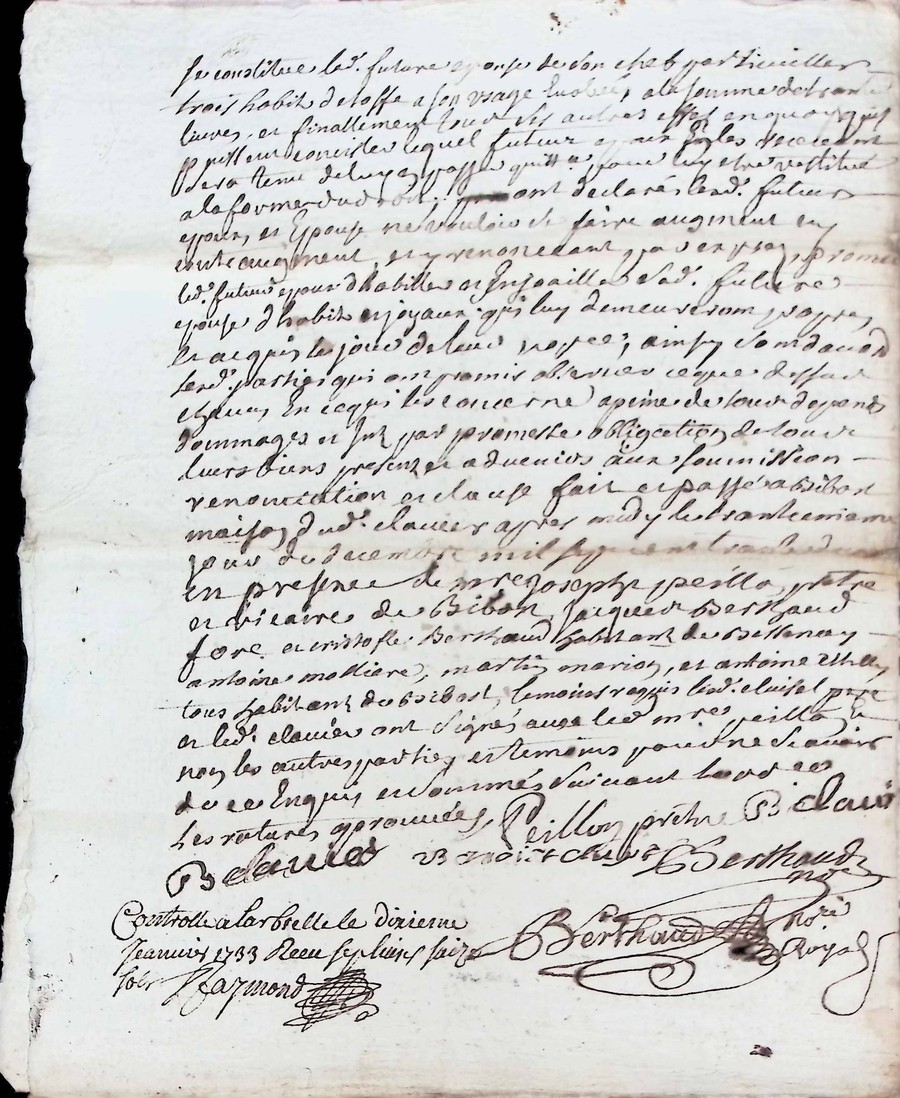 se constitue led. future epouse de son chef particuillier
trois habit detoffe a son usage Evalué, a la somme de trante
livres, et finallement tous ses autres effes en quoy quils
puissent concister lequel futur epoux les recevant
sera tenu de luy en passer quitt.ce pour luy estre restitué
a la forme du droit, ont declarés led. futur
epoux, et Epouse ne vouloir se faire augment ny
contraugment, et y renoncant, par exprez, promet
led. futur epoux d'habiller et Enjoailler lad. future
epouse d'habit et joyaux qui luy demeureront propres,
et acquis le jour de leur nopces, ainsy sont d'accord
led. parties qui ont promis observer ce que dessus
chacun En ce qui les concerne a peine de tous depens
dommages et Int. par promesse obligation de tous
leurs biens presentz et advenirs aux soumission
renonciation et clause fait et passé a Bibost
maison dud. clavier apres midy le trantenieme
jour de decembre mil sept cent trante deux
en presence de mre Joseph peillon, prêtre
et vicaire de Bibost, Jacques Berthaud
fore et cristofle Berthaud habitant de Bessenay
antoine molliere, martin marion, et antoine
tous habitant de Bibost, temoins requis led. pere
et led. clavier ont signés avec led. mre peillon et
non les autres parties et temoins pour ne scavoir
de ce Enquis et sommés suivant lord.ce
les ratures aprouvées Peillon prêtre B clavier
B clavier Berthaud
nore
Controllé a Larbrelle le dixieme
Jeanvier 1733 Receu sept livres saize
sols Raymond
Berthaud
nore
Royal